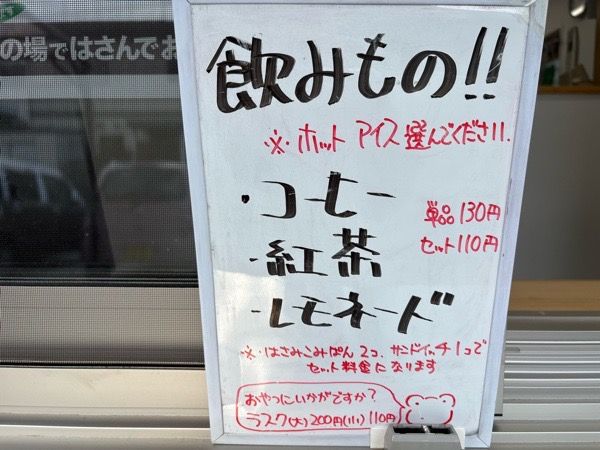 の場ではさんでお
飲みもの!!
※ホット アイス 選んでください.
・コーヒー
単品130円
セット110円
・紅茶
・レモネード
※・はさみこみぱん2コ.サンドイッチ1コで
セット料金になります
おやつにいかがですか?
ラスク(大)200円(小)110円